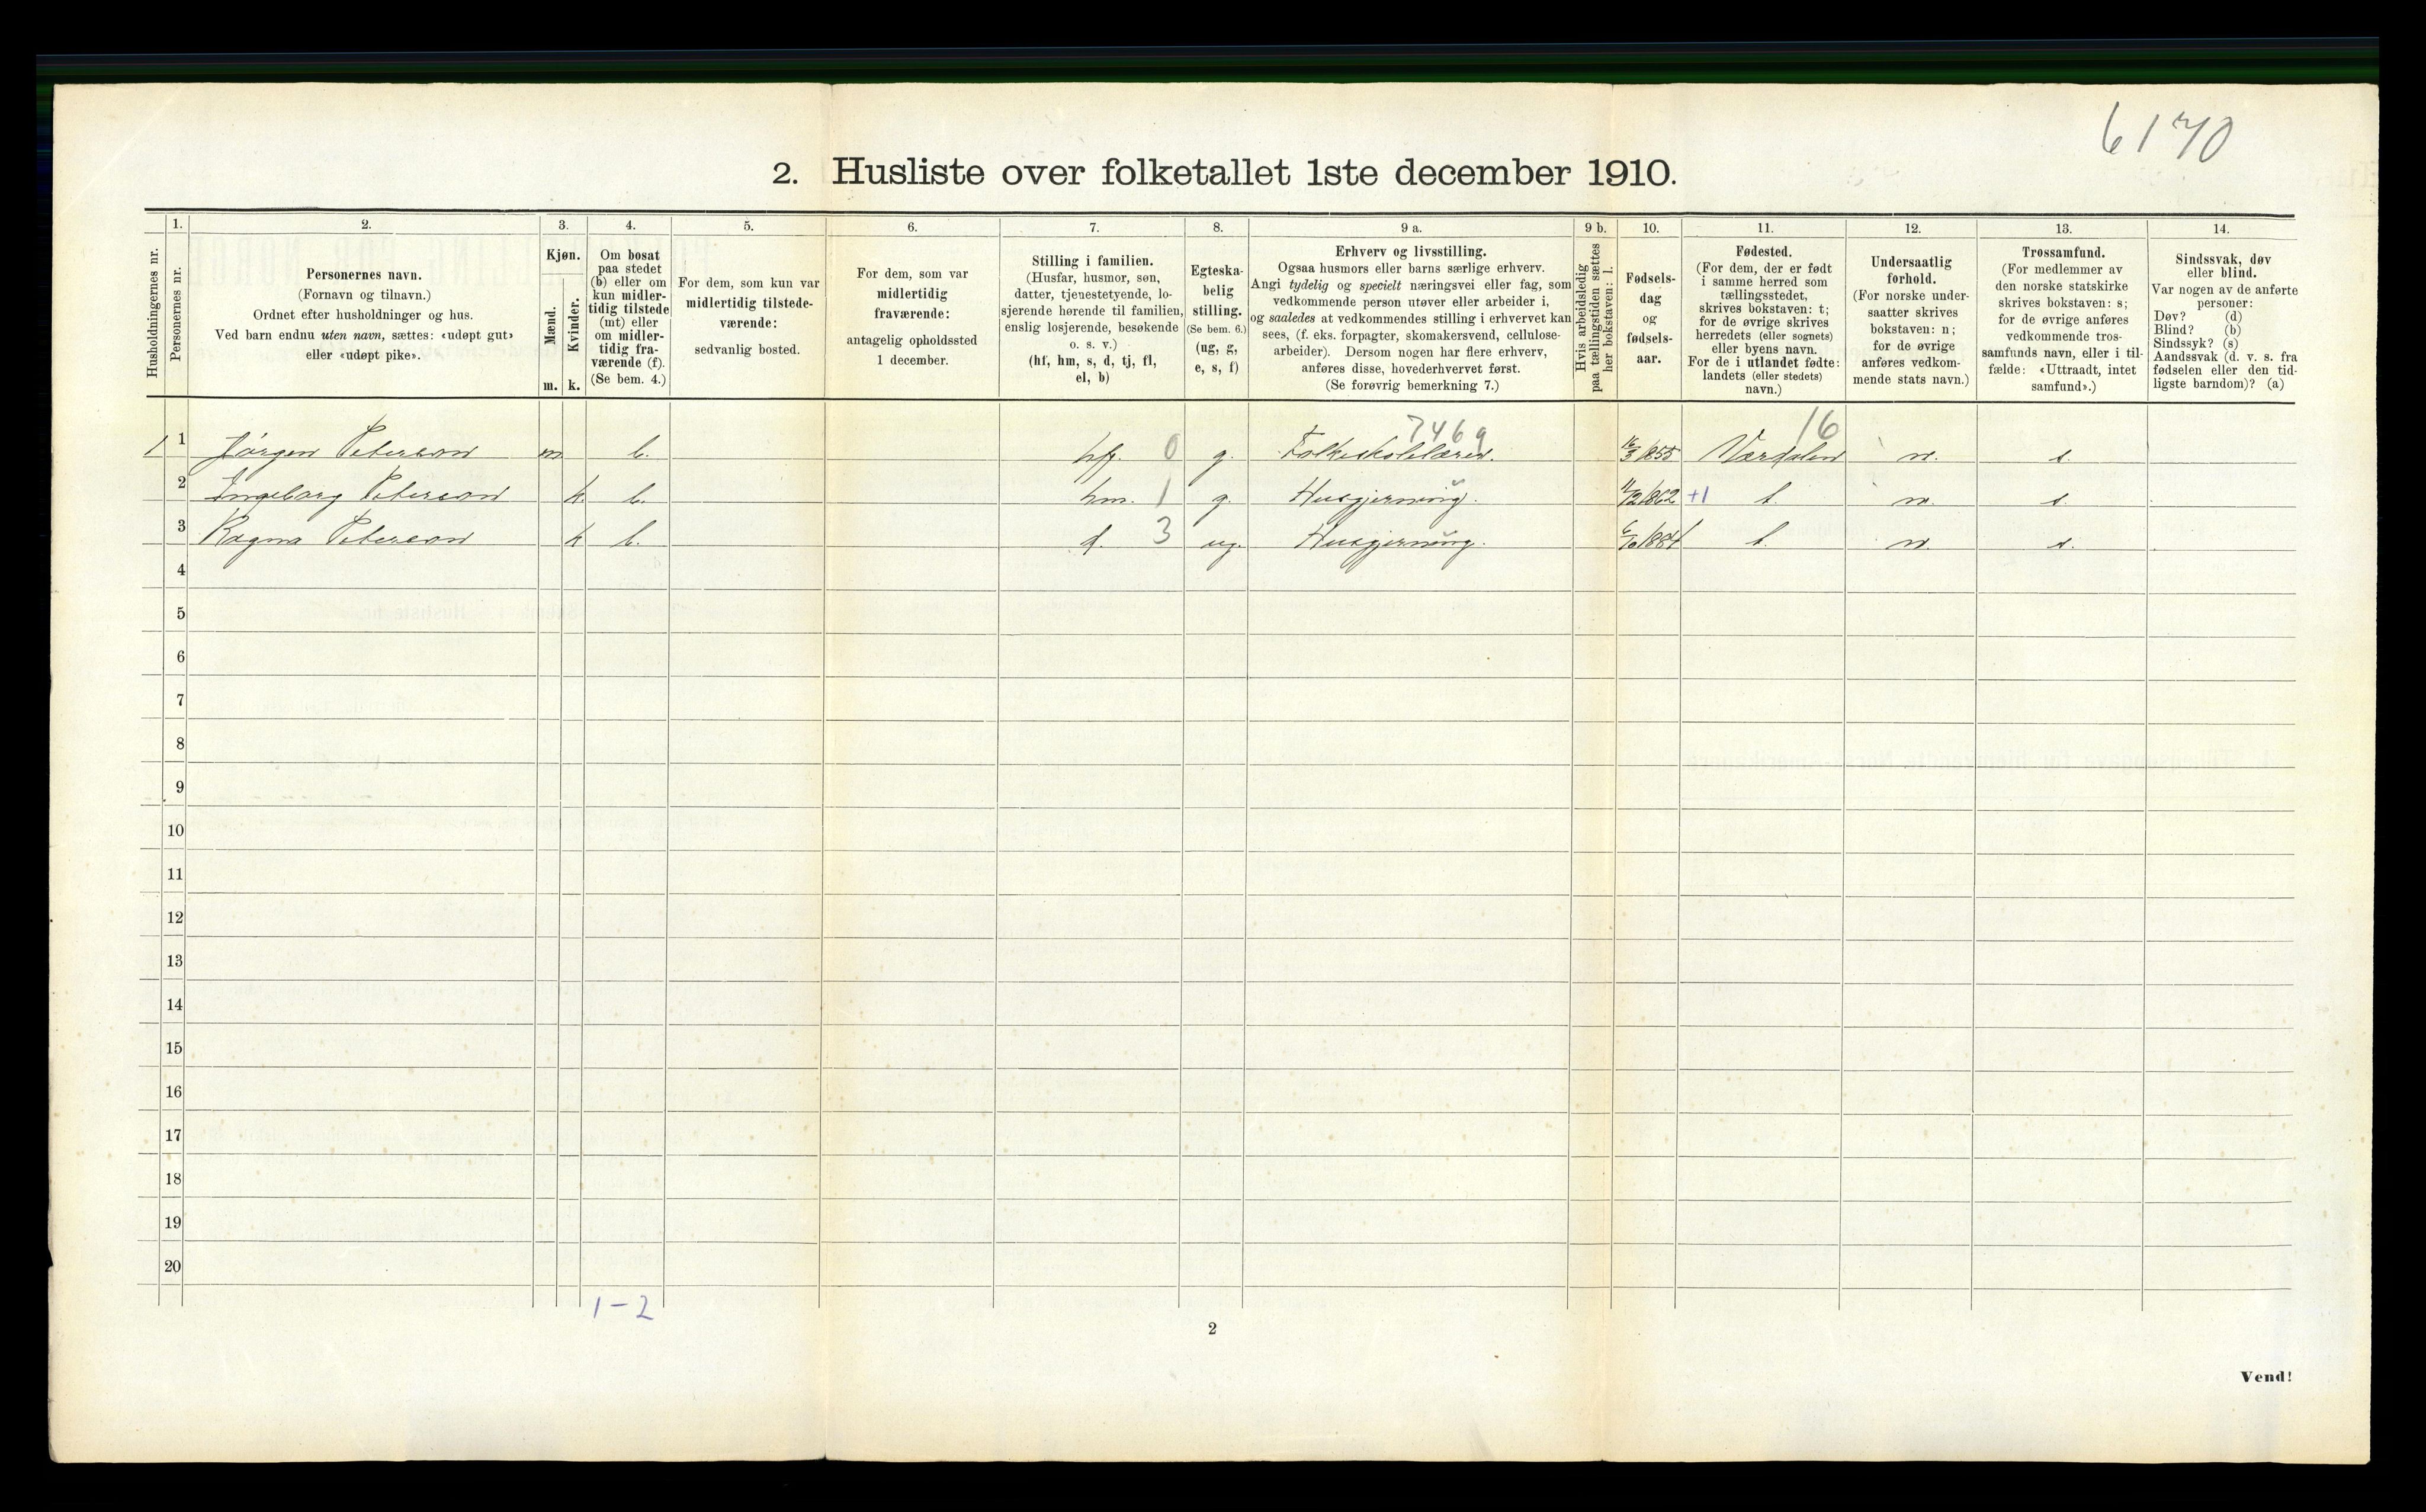 6170
2. Husliste over folketallet 1ste december 1910.
Husholdningernes nr.
1.
Personernes nr.
2.
Personernes navn.
(Fornavn og tilnavn.)
Ordnet efter husholdninger og hus.
Ved barn endnu uten navn, sættes: «udøpt gut»
eller «udøpt pike».
3.
Kjøn.
Mænd.
Kvinder.
m. k.
4.
Om bosat
paa stedet
(b) eller om
kun midler-
tidig tilstede
(mt) eller
om midler-
tidig fra-
værende (f).
(Se bem. 4.)
5.
For dem, som kun var
midlertidig tilstede-
værende:
sedvanlig bosted.
6.
For dem, som var
midlertidig
fraværende:
antagelig opholdssted
1 december.
7.
Stilling i familien.
(Husfar, husmor, søn,
datter, tjenestetyende, lo-
sjerende hørende til familien,
enslig losjerende, besøkende
o. s. v.)
(hf, hm, s, d, tj, fl,
el, b)
8.
Egteska-
belig
stilling.
(Se bem. 6.)
(ug, g,
e, s, f)
9 a.
Erhverv og livsstilling.
Ogsaa husmors eller barns særlige erhverv.
Angi tydelig og specielt næringsvei eller fag, som
vedkommende person utøver eller arbeider i,
og saaledes at vedkommendes stilling i erhvervet kan
sees, (f. eks. forpagter, skomakersvend, cellulose-
arbeider). Dersom nogen har flere erhverv,
anføres disse, hovederhvervet først.
(Se forøvrig bemerkning 7.)
9 b.
Hvis arbeidsledig
paa tællingstiden sættes
her bokstaven: l.
10.
Fødsels-
dag
og
fødsels-
aar.
11.
Fødested.
(For dem, der er født
i samme herred som
tællingsstedet,
skrives bokstaven: t;
for de øvrige skrives
herredets (eller sognets)
eller byens navn.
For de i utlandet fødte:
landets (eller stedets)
navn.)
12.
Undersaatlig
forhold.
(For norske under-
saatter skrives
bokstaven: n;
for de øvrige
anføres vedkom-
mende stats navn.)
13.
Trossamfund.
(For medlemmer av
den norske statskirke
skrives bokstaven: s;
for de øvrige anføres
vedkommende tros-
samfunds navn, eller i til-
fælde: «Uttraadt, intet
samfund».)
14.
Sindssvak, døv
eller blind.
Var nogen av de anførte
personer:
Døv? (d)
Blind? (b)
Sindssyk? (s)
Aandssvak (d. v. s. fra
fødselen eller den tid-
ligste barndom)? (a)
7469 16
1 1 Jørgen Peterson m b. hf. 0 g. Folkeskolelærer. 16/3 1855 Værdalen n. s.
2 Ingeborg Peterson k b. hm. 1 g. Husgjerning. 11/12 1862 +1 t. n. s.
3 Ragna Peterson k b. d. 3 ug. Husgjerning. 6/10 1884 t. n. s.
4
5
6
7
8
9
10
11
12
13
14
15
16
17
18
19
20
1-2
2
Vend!